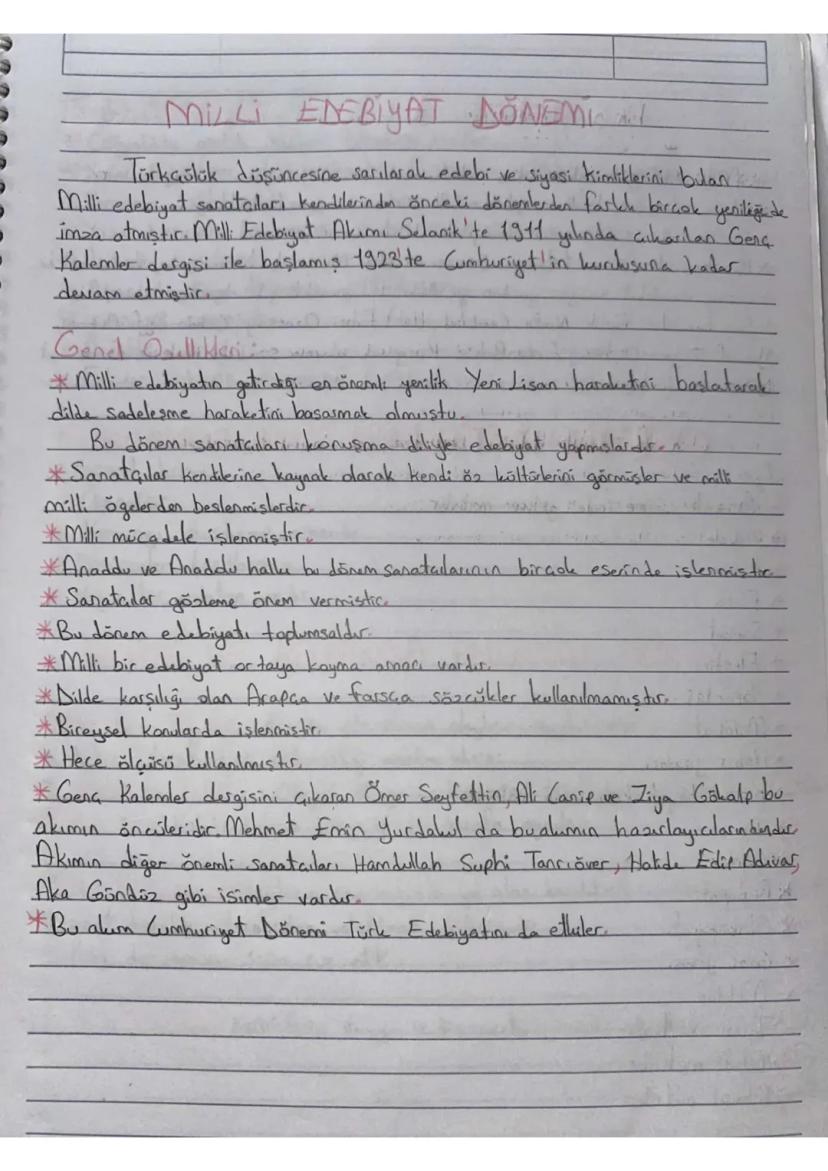 MİLLİ EDEBİYAT DÖNEMİ
Türkçülük düşüncesine sarılarak edebi ve siyasi kimliklerini bulan
Milli edebiyat sanatcıları kendilerinden önceki dönemlerden farklı bircok yeniliğede
imza atmıştır. Milli Edebiyat Akımı Selanik'te 1911 yılında cıkarılan Genç
Kalemler dergisi ile başlamış 1923'te Cumhuriyet'in kuruluşuna kadar
devam etmiştir.
Genel Özellikleri:
* Milli edebiyatın getirdiği en önemli yenilik Yeni Lisan haraketini baslatarak
dilde sadelesme haraketini basarmak olmuştu.
Bu dönem sanatcıları konuşma diliyle edebiyat yapmıslardır.
* Sanatçılar kendilerine kaynak olarak kendi öz kültürlerini görmüşler ve milli
milli ögelerden beslenmişlerdir.
* Milli mücadele işlenmiştir.
* Anadolu ve Anadolu halkı bu dönem sanatcılarının bircok eserinde işlenmistir.
* Sanatcılar gözleme önem vermistir.
* Bu dönem edebiyatı toplumsaldır.
* Milli bir edebiyat ortaya koyma amacı vardır.
* Dilde karşılığı olan Arapça ve farsca sözcükler kullanılmamıştır.
* Bireysel konularda işlenmistir.
* Hece ölçüsü kullanılmıstır.
* Genç Kalemler dergisini çıkaran Ömer Seyfettin, Ali Canip ve Ziya Gökalp bu
akımın öncüleridir. Mehmet Emin Yurdakul da bu akımın hazırlayıcılarındandır.
Akımın diğer önemli sanatcıları Hamdullah Suphi Tanrıöver, Halide Edip Adıvar,
Aka Gündüz gibi isimler vardır.
* Bu akım Cumhuriyet Dönemi Türk Edebiyatını da etkiler.